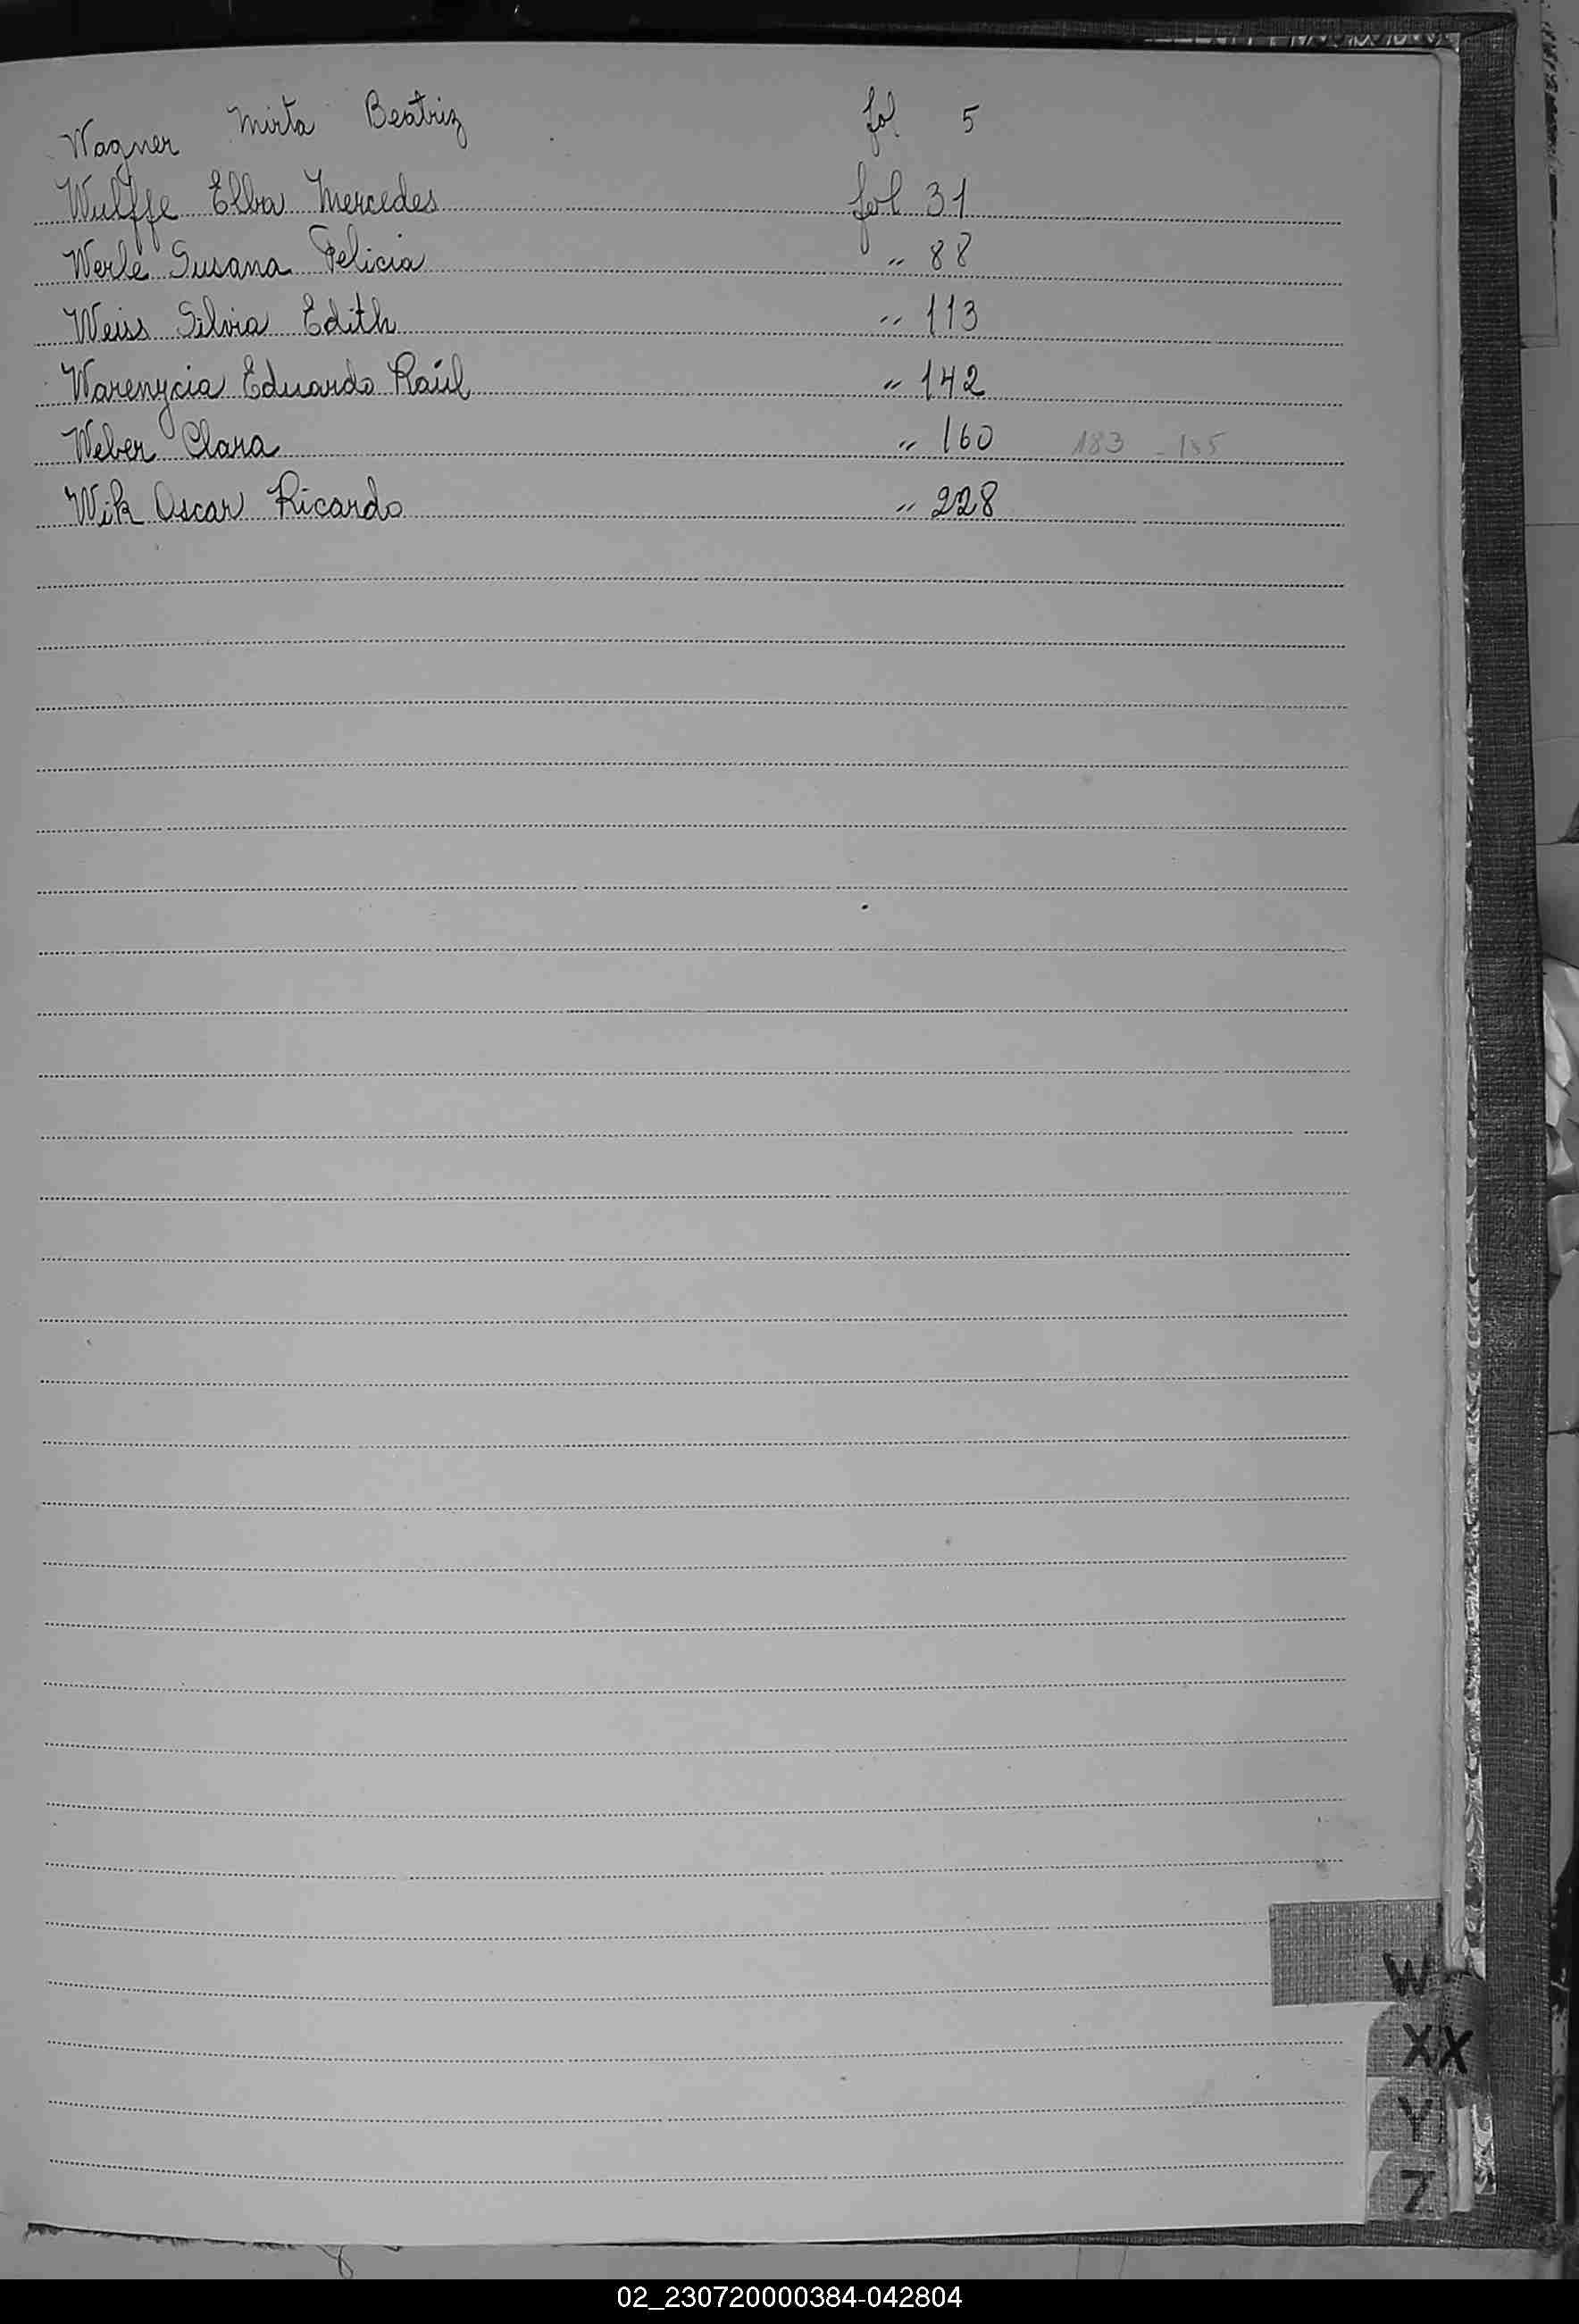 Wagner Mirta Beatriz fol 5
Wulffe Elba Mercedes fol 31
Werle Susana Felicia " 88
Weiss Silvia Edith " 113
Warenycia Eduardo Raúl " 142
Weber Clara " 160 183
Wik Oscar Ricardo " 228
W
XX
Y
Z
02_230720000384-042804